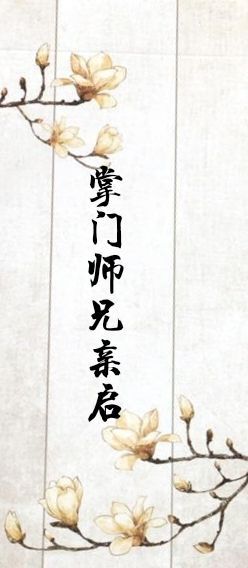 掌门师兄亲启